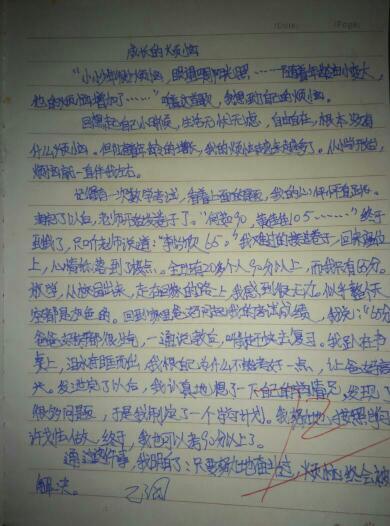 成长的烦恼
"小小少年很少烦恼，眼望四周阳光照……随着年龄由小变大，
他的烦恼增加了……"唱起这首歌，我想到了自己的烦恼。
回想起自己小时候，生活无忧无虑，自由自在，根本没有
什么烦恼。但随着年龄的增长，我的烦恼也越来越多了。从小学开始，
烦恼就一直伴我左右。
记得有一次数学考试，看着上面的题，我的心
以后，老师开始发卷子了。"何 90，黄 105……"终于
到我了，只听老师说道："65。"我难过的接过卷子，回到座位
上，心情 落到了极点。全班有20多个人90分以上，而我只有65分。
放学，从校园出来，走在回家的路上我感到很无力。似乎整个天
空都是灰色的。回到家里爸妈问起我的考试成绩，我说："65分"
爸爸妈妈都很生气，一通说教后，叫我赶快去复习。我趴在书
桌上，泪水夺眶而出，我恨自己为什么不能考好一点，让爸妈高
兴。发泄完了以后，我认真地想了一下自己的学习情况，发现了
很多问题，于是我制定了一个学习计划。我努力地按照学习
计划去做，终于，我也可以考90分以上了。
通过这件事，我明白了：只要努力地奋斗过，烦恼终会被
解决。